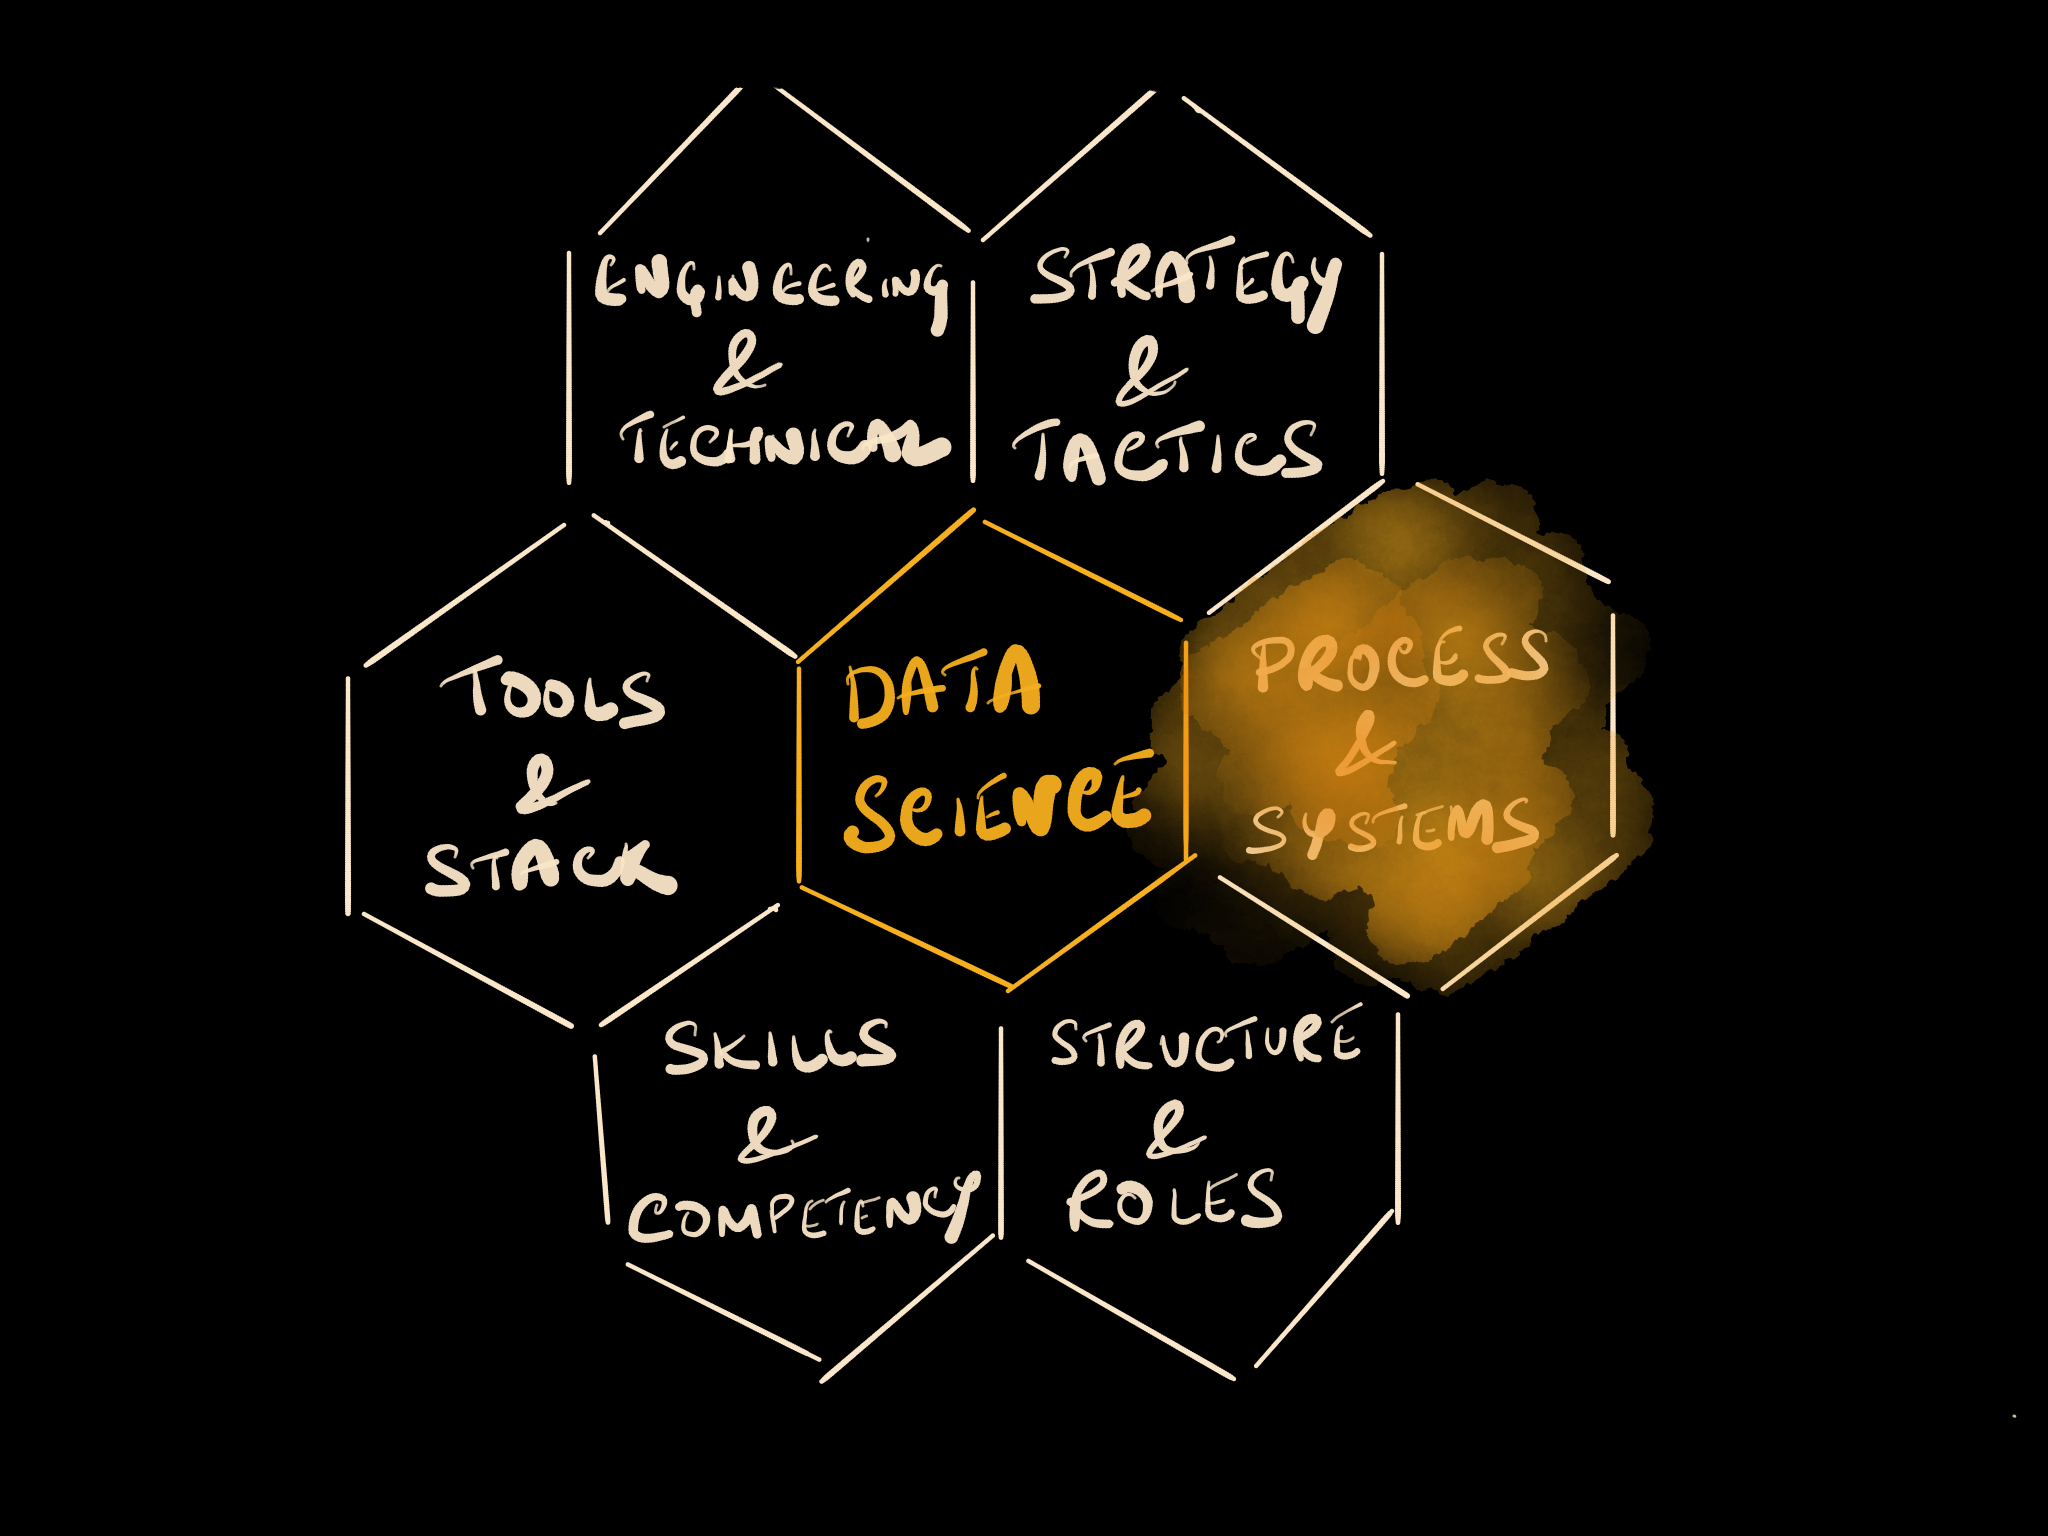 ENGINEERING
&
TECHNICAL
STRATEGY
&
TACTICS
TOOLS
&
STACK
DATA
SCIENCE
PROCESS
&
SYSTEMS
SKILLS
&
COMPETENCY
STRUCTURE
&
ROLES